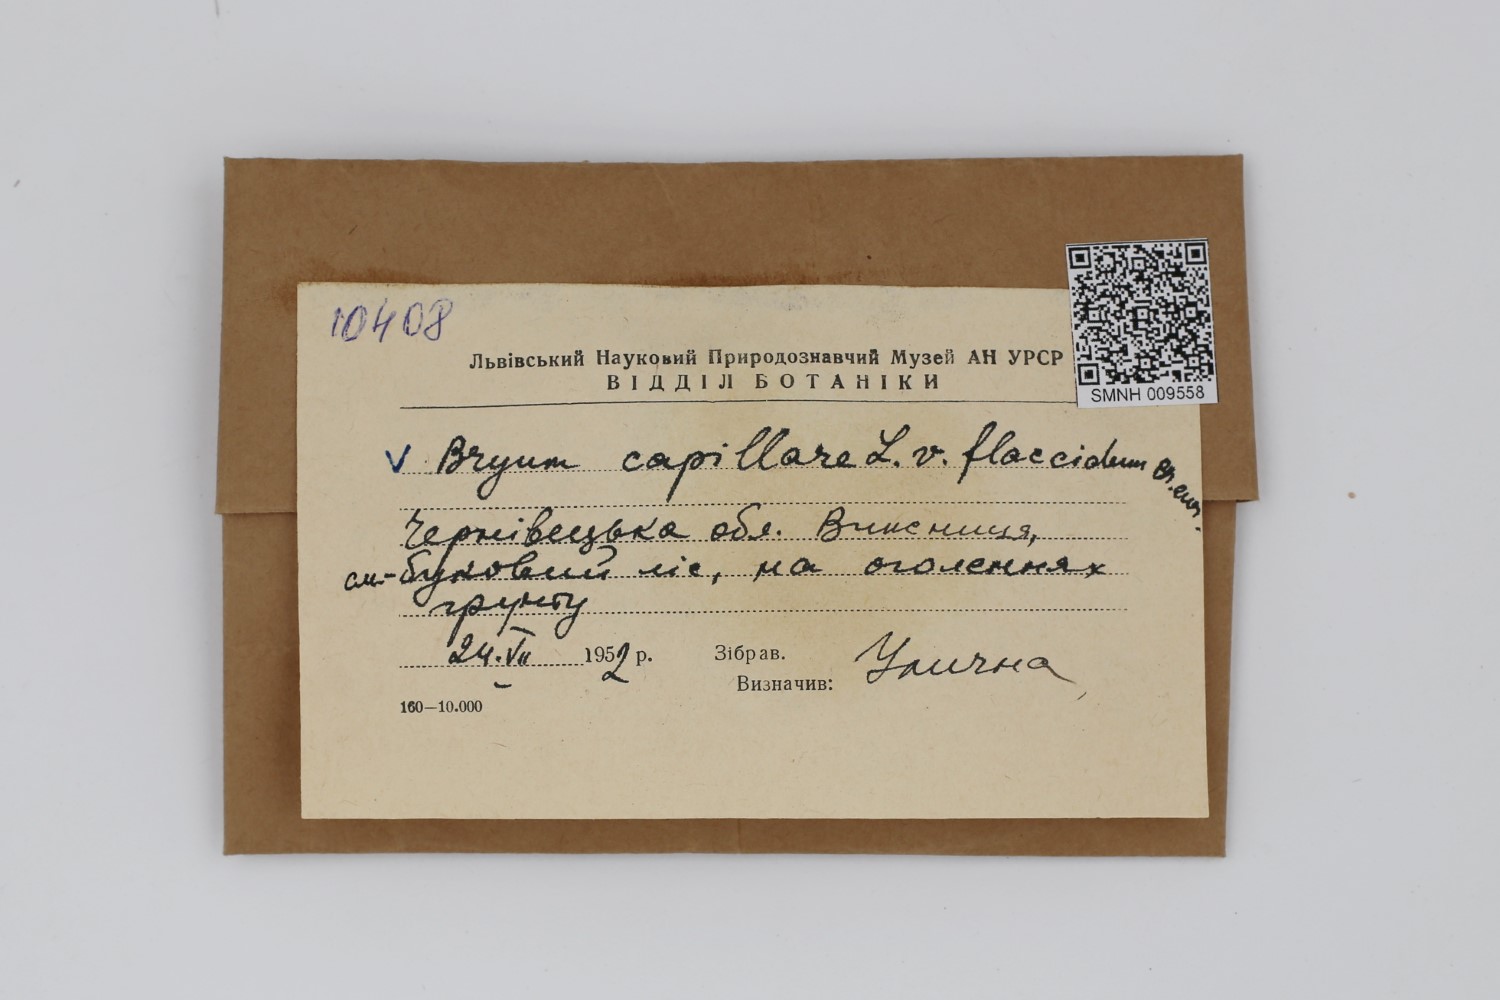 10408
Львівський Науковий Природознавчий Музей АН УРСР
ВІДДІЛ БОТАНІКИ
SMNH 009558
V Bryum capillare L. v. flaccidum Br. eur.
Чернівецька обл. Вижниця,
см.-буковий ліс, на оголеннях
грунту
24.VII 1952 р. Зібрав. Улична
Визначив:
160—10.000